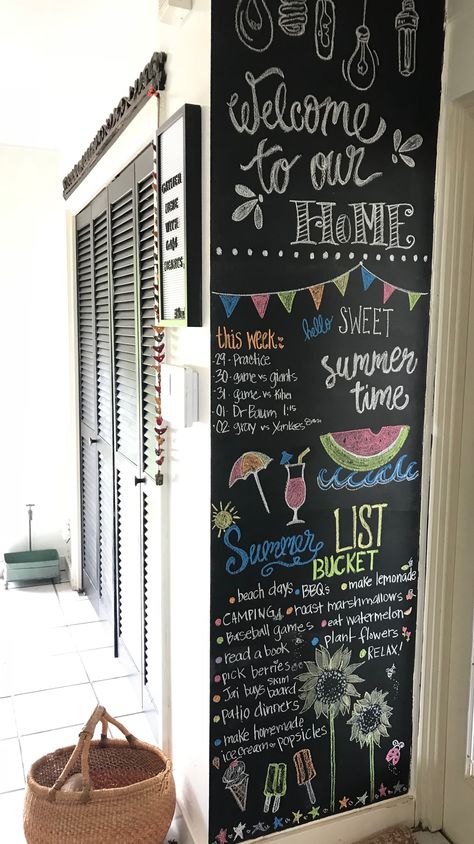 Welcome
to our
HOME
GATHER
HERE
WITH
this week:
hello SWEET
summer
time
29 - Practice
30 - game vs giants
31 - game vs Kiha
01 Dr Baum 1:15
02 gray vs Yankees
Summer LIST
BUCKET
beach days BBQs make lemonade
CAMPING roast marshmallows
Baseball games eat watermelon
read a book plant flowers
pick berries RELAX!
Jori buys skim board
patio dinners
make homemade
icecream or popsicles